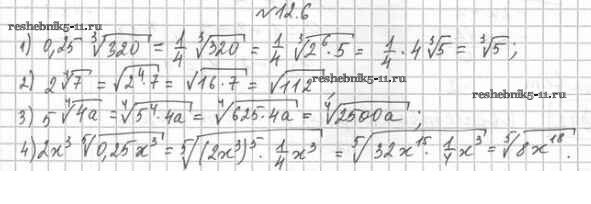 №12.6
reshebnik5-11.ru
1) 0,25 ∛320 = 1/4 ∛320 = 1/4 ∛(2⁶·5) = 1/4 · 4∛5 = ∛5;
2) 2∜7 = ∜(2⁴·7) = ∜(16·7) = ∜112
reshebnik5-11.ru
3) 5∜(4a) = ∜(5⁴·4a) = ∜(625·4a) = ∜(2500a);
4) 2x³ ⁵√(0,25x³) = ⁵√((2x³)⁵ · 1/4 x³) = ⁵√(32x¹⁵ · 1/4 x³) = ⁵√(8x¹⁸).